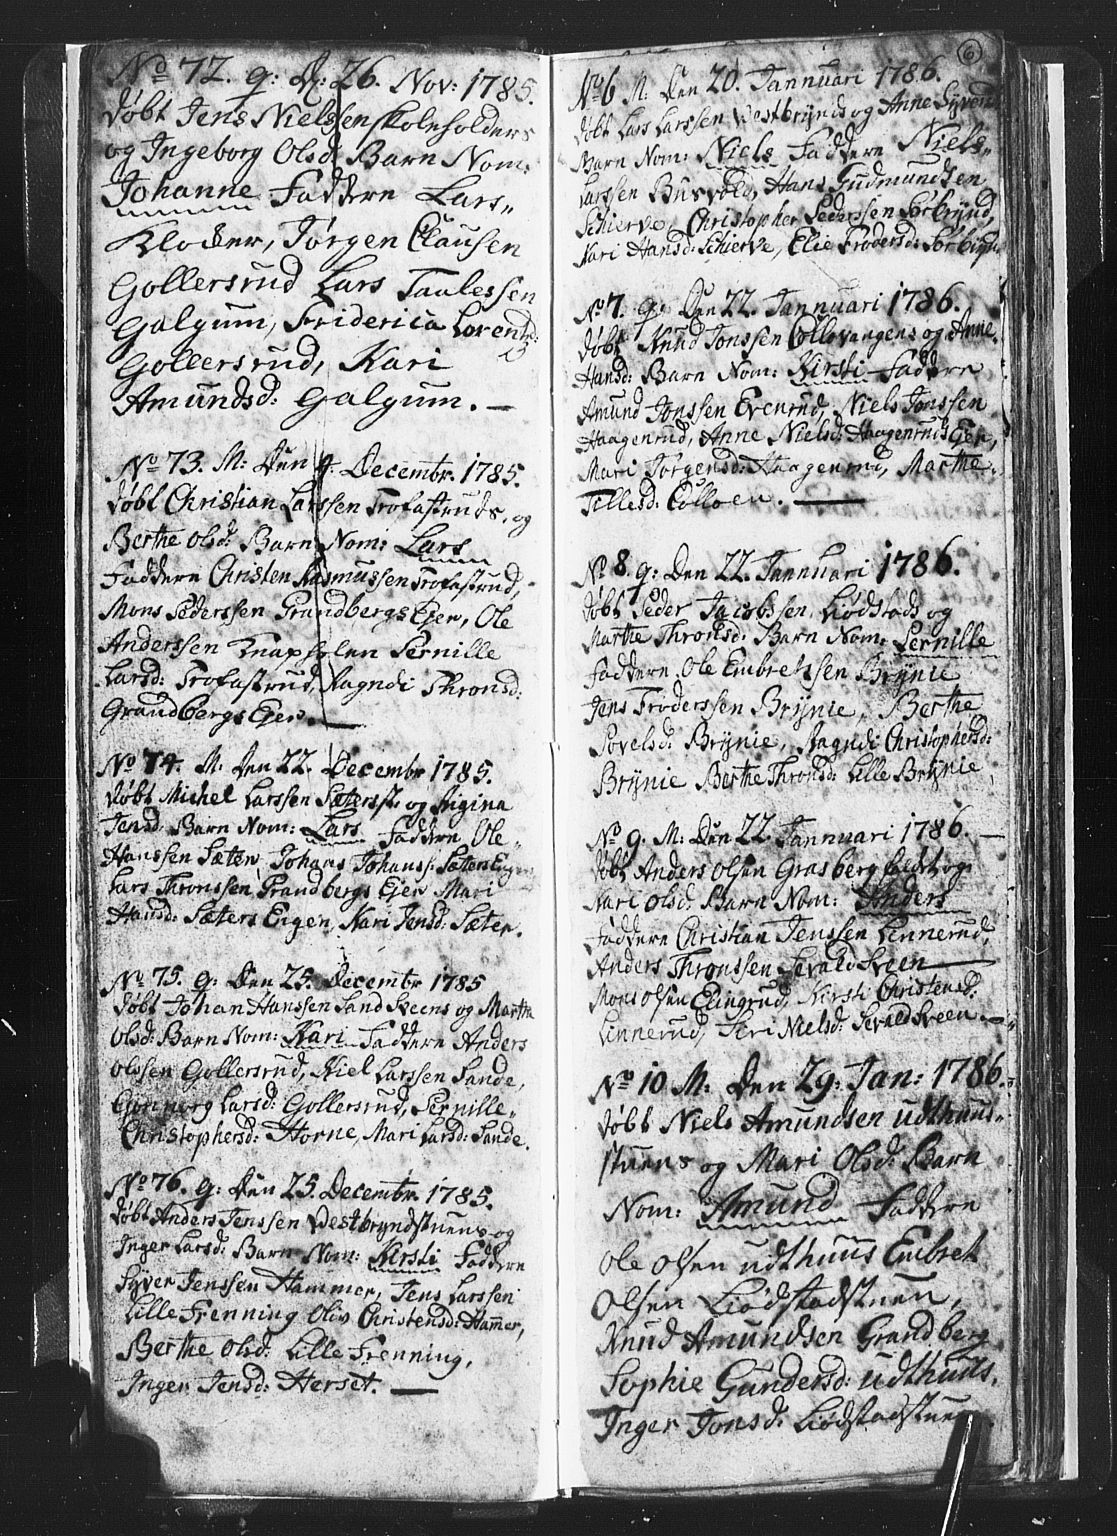 No 72. q: D: 26. Nov: 1785.
døbt Jens Nielssen skoleholders
og Ingeborg Olsd: Barn Nom:
Johanne Faddere Lars
Klocker, Jørgen Clausen
Gollersrud Lars Taalessen
Galgum, Friderica Lorentzd:
Gollersrud, Kari
Amundsd: Galgum. —
No 73. M: Den 4. Decembr. 1785.
døbt Christian Larssen Trofastruds, og
Berthe Olsd: Barn Nom: Lars
Faddere Christen Rasmussen Trofastrud,
Mons Pederssen Grandbergs Ejer, Ole
Anderssen Knapholen Pernille
Larsd: Trofastrud, Ragndi Thronsd:
Grandbergs Ejer. —
No 74. M: Den 22. Decembr 1785.
døbt Michel Larssen Sæters og Rigina
Jensd: Barn Nom: Lars Faddere Ole
Hanssen Sæter, Johans Johans: Sæter Engen
Lars Thronssen Grandbergs Ejer Mari
Hansd: Sæters Engen, Kari Jensd: Sæter.
No 75. q: Den 25. Decembr 1785
døbt Johan Hanssen Sand Sveens og Marthe
Olsd: Barn Nom: Kari Faddere Anders
Olssen Gollersrud, Niel Larssen Sande,
Gonnorg Larsd: Gollersrud, Pernille
Christophersd: Horne, Mari Larsd: Sande.
No 76. q: Den 25. Decembr 1785.
døbt Anders Jenssen Westbryndstuens og
Inger Larsd: Barn Nom: Kirsti Faddere
Syver Jenssen Hammer, Jens Larssen
Lille Frenning Oliv Christensd: Hamer,
Berthe Olsd: Lille Frenning,
Inger Jensd: Herset. —
6
No 6 M: Den 20. Jannuari 1786.
døbt Lars Larssen Westbrynds og Anne Syversd
Barn Nom: Niels Faddere Niels
Larssen Busvold, Hans Gudmundsen
Schierve, Christopher Pederssen Sørbrynd,
Kari Hansd: Schierve, Elie Frodersd: Sørbrynd
No 7. q: Den 22. Jannuari 1786.
døbt Knud Jonssen Collovangens og Anne
Hansd: Barn Nom: Kirsti Faddere
Amund Jonssen Evenrud, Niels Jonssen
Haagenrud, Anne Nielsd: Haagenruds Ejer,
Mari Jørgensd: Haagenrud, Marthe
Tillesd: Colloen. —
No 8. q: Den 22. Jannuari 1786.
døbt Peder Jacobssen Liødstads og
Marthe Thronsd: Barn Nom: Pernille
Faddere Ole Embretssen Brynie
Jens Froderssen Brynie, Berthe
Povelsd: Brynie, Ragndi Christophersd:
Brynie Berthe Thronsd: Lille Brynie,
No 9. M: Den 22. Jannuari 1786. —
døbt Anders Olsen Grasberg og
Kari Olsd: Barn Nom: Anders
Faddere Christian Jenssen Linnerud,
Anders Thronssen Sevald Sveen
Mons Olsen Elingrud, Kirsti Christensd:
Linnerud, Siri Nielsd: Sevald Sveen. —
No 10 M: Den 29: Jan: 1786.
døbt Niels Amundsen udthuus-
stuens og Mari Olsd: Barn
Nom: Amund Faddere
Ole Olsen udthuus Embret
Olsen Liødstadstuen,
Knud Amundsen Grandberg
Sophie Gundersd: udthuus,
Inger Jonsd: Liødstadstuen.